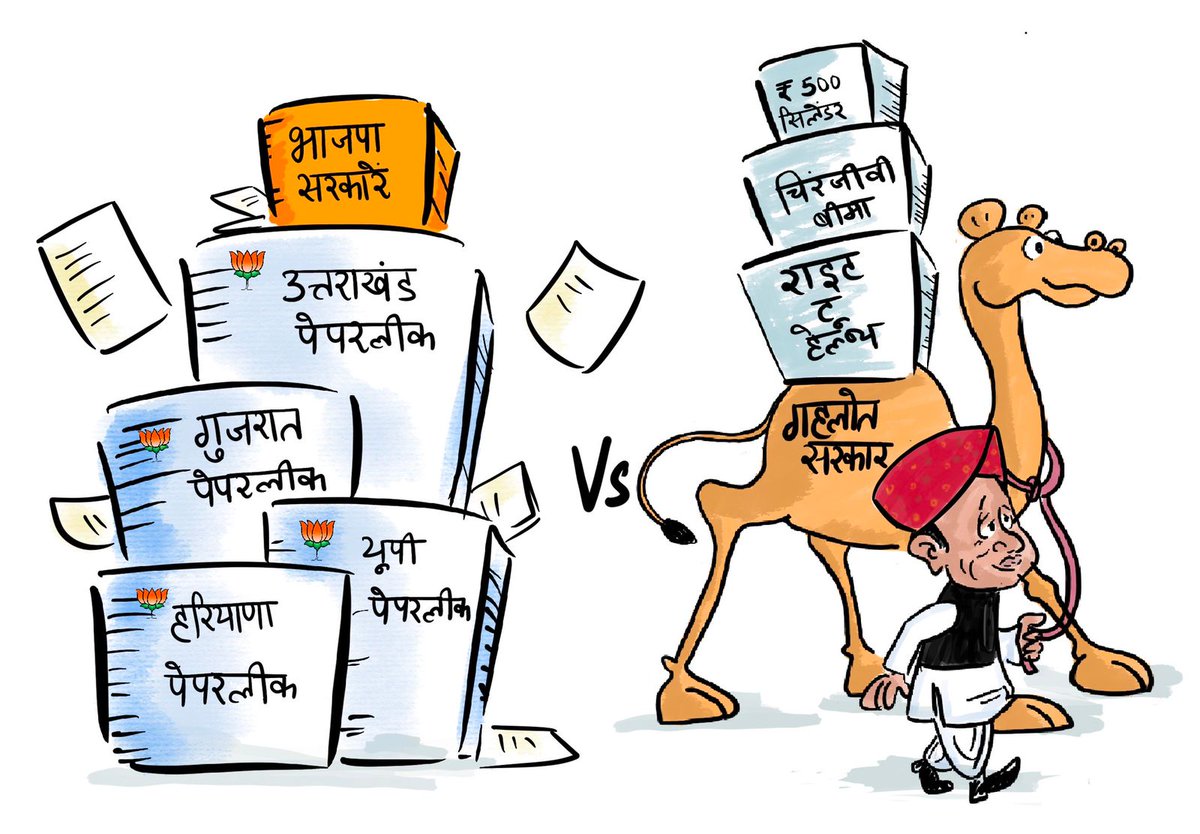 भाजपा
सरकारें
उत्तराखंड
पेपरलीक
गुजरात
पेपरलीक
यूपी
पेपरलीक
हरियाणा
पेपरलीक
Vs
₹ 500
सिलेंडर
चिरंजीवी
बीमा
राइट
टू
हेल्थ
गहलोत
सरकार